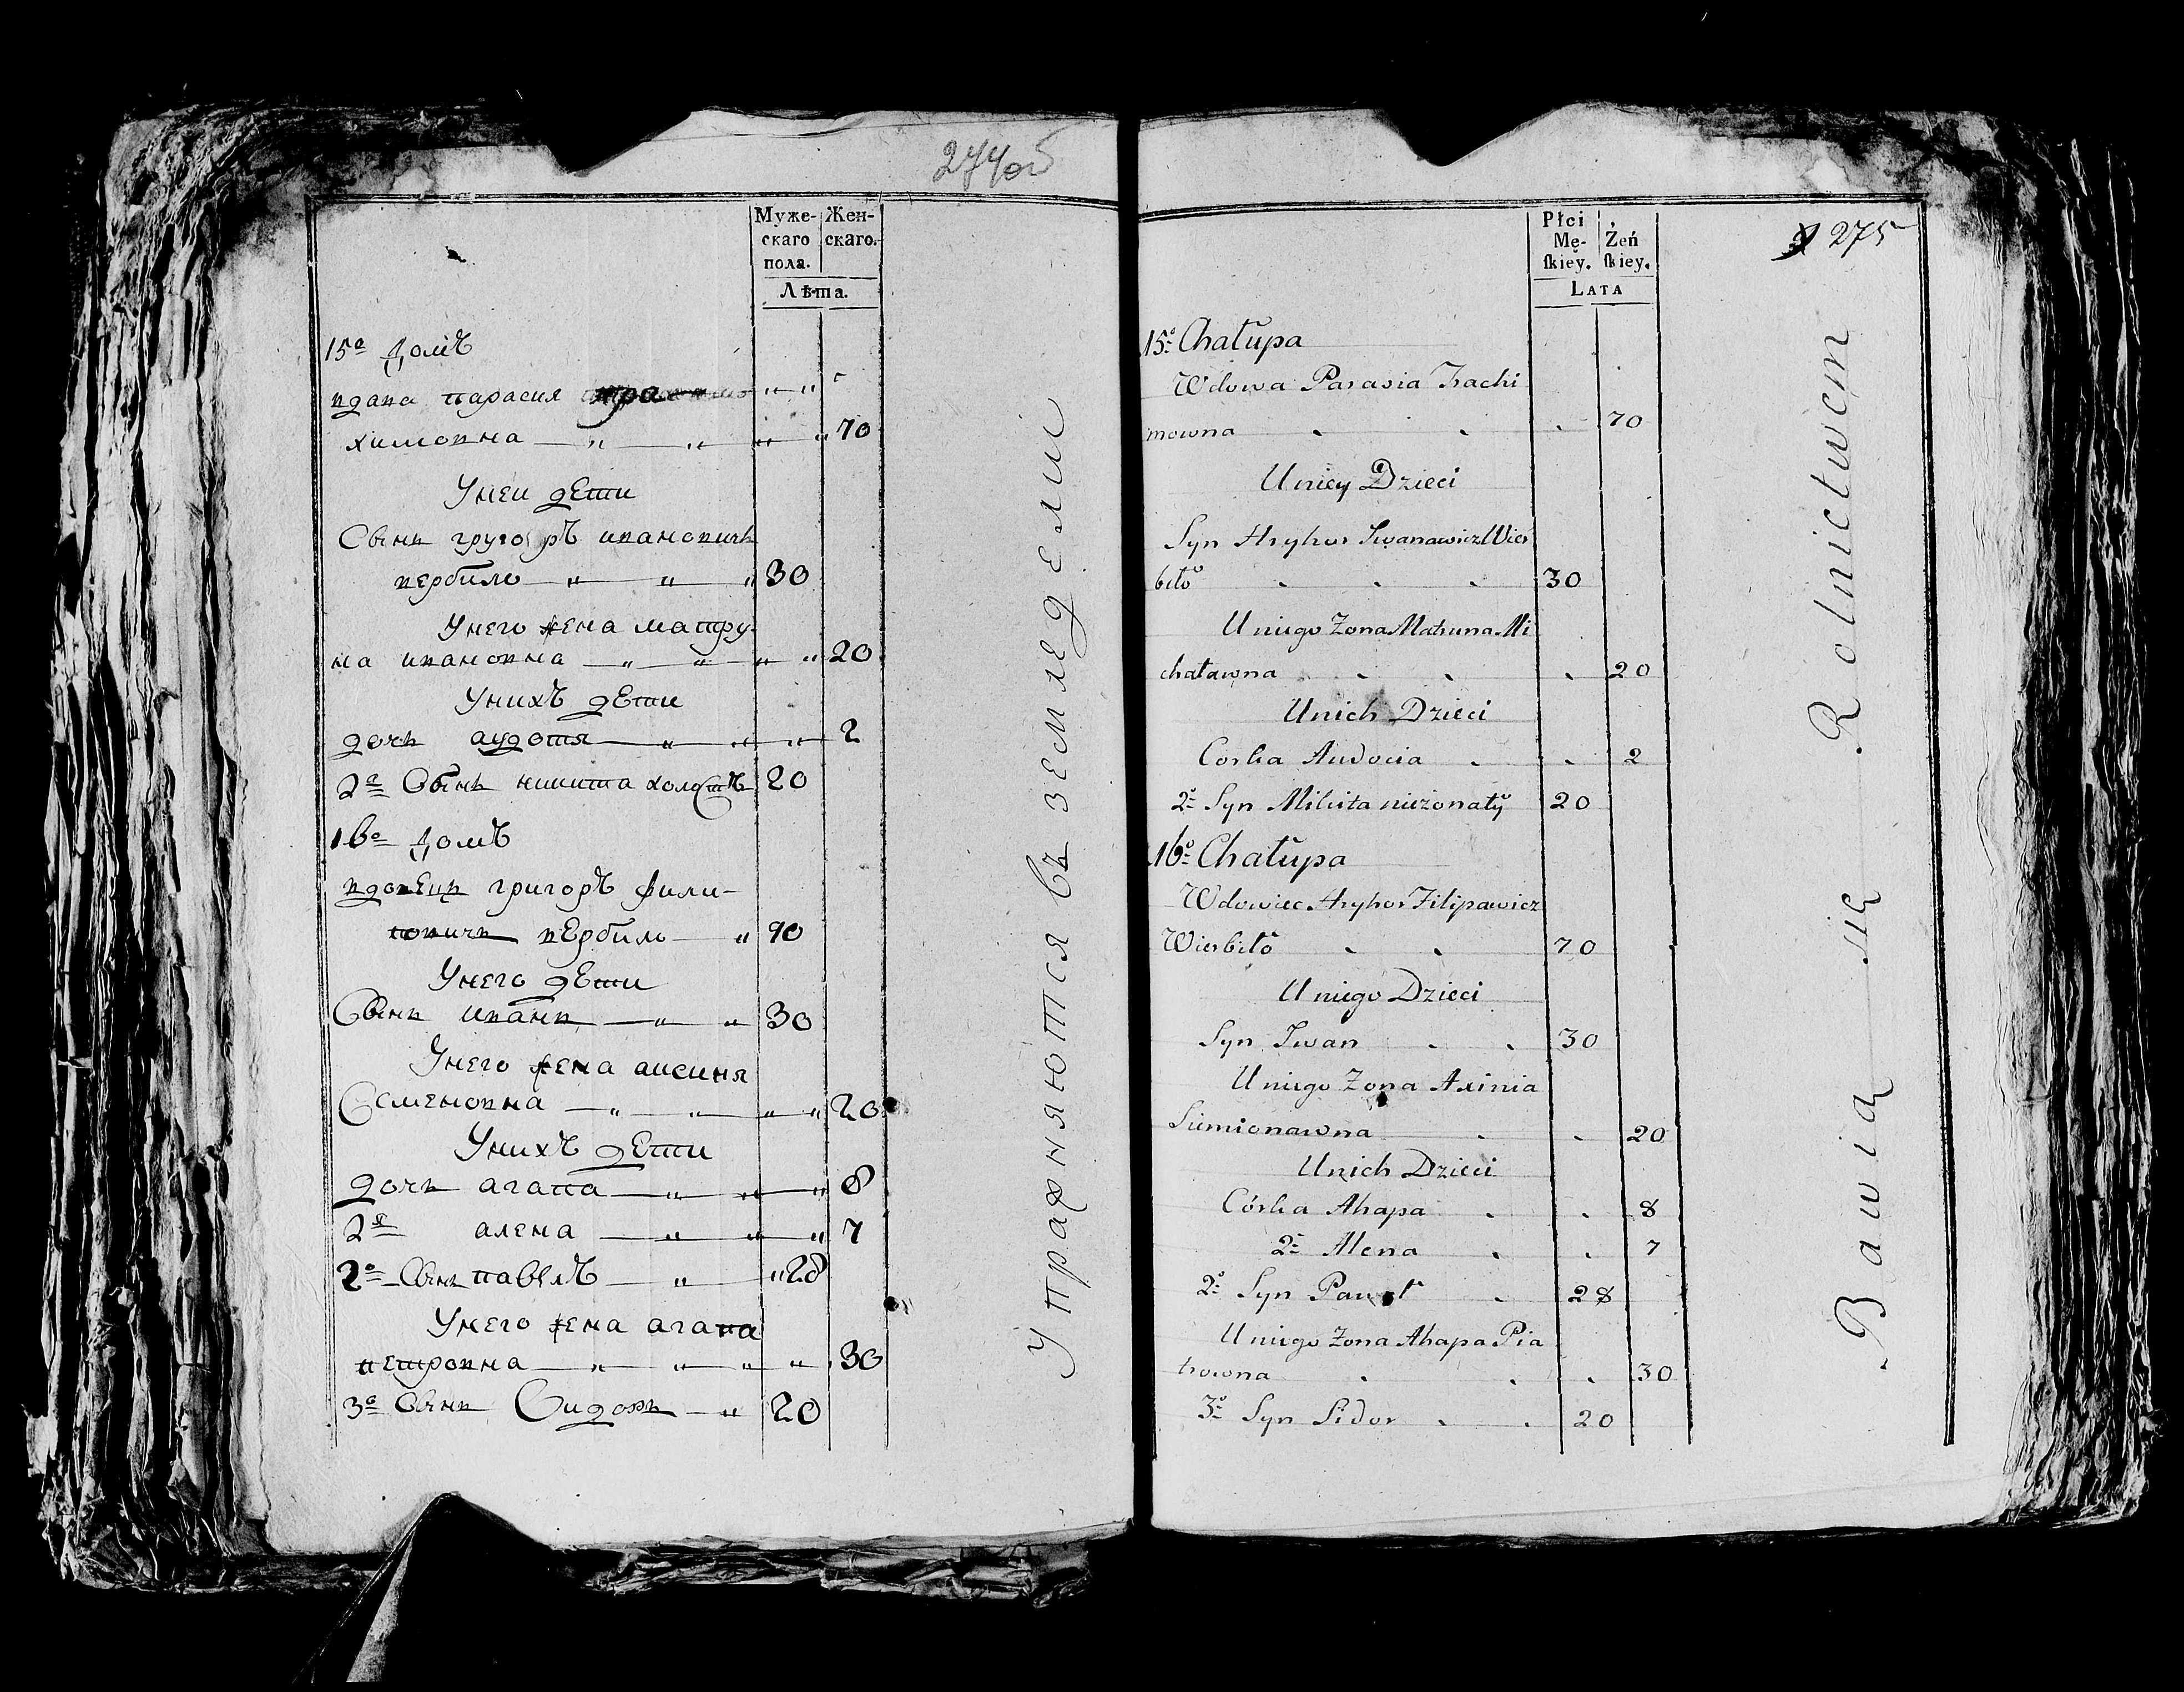 274об
Муже- Жен-
скаго скаго.
пола.
Лѣта.
15о Домъ
вдава парасия
химовна — „ — „ — „ — „ 70
Унеи дети
Сынъ григоръ ивановичъ
вербило — „ — „ — „ 30
Унего жена матру-
на ивановна — „ — „ — „ — „ 20
Унихъ дети
дочь аудотя — „ — „ — „ — 2
2й Сынъ никита холостъ 20
16о Домъ
вдовецъ григоръ фили-
повичъ вербило — „ 70
Унего дети
Сынъ иванъ — „ — „ 30
Унего жена аксиня
Семеновна — „ — „ — „ — „ 20
Унихъ дети
дочь агапа — „ — „ — „ 8
2я алена — „ — „ — „ 7
2о Сынъ павелъ — „ — „ 28
Унего жена агапа
петровна — „ — „ — „ — „ 30
3о Сынъ Сидоръ — „ 20
Упражняются въ земледелии
275
Płci
Mę- Żeń
skiey. skiey.
LATA
15o Chałupa
Wdowa Parasia Trachi
mowna . . . 70
Uniey Dzieci
Syn Hryhor Iwanawicz Wier
biło . . . 30
Uniego Zona Matruna Mi
chaławna . . . 20
Unich Dzieci
Corka Audocia . . 2
2o Syn Mikita nieżonaty 20
16o Chałupa
Wdowiec Hryhor Filipawicz
Wierbiło . . 70
Uniego Dzieci
Syn Iwan . . 30
Uniego Zona Axinia
Siemionawna . . 20
Unich Dzieci
Córka Ahapa . . 8
2a Alena . . 7
2o Syn Paweł . 28
Uniego Zona Ahapa Pia
trowna . . . 30
3o Syn Sidor . . 20
Bawią się Rolnictwem